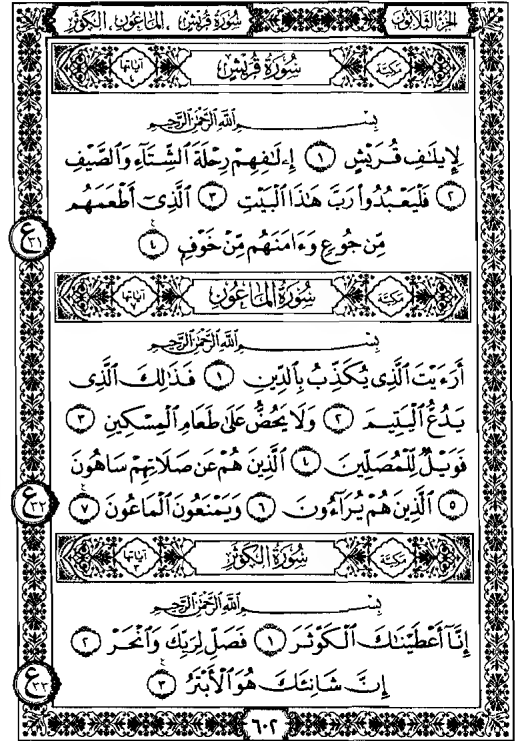 الجزء الثلاثون سورة قريش . الماعون . الكوثر
مكية سورة قريش آياتها ٤
بِسْمِ اللَّهِ الرَّحْمَٰنِ الرَّحِيمِ
لِإِيلَٰفِ قُرَيْشٍ ١ إِۦلَٰفِهِمْ رِحْلَةَ الشِّتَآءِ وَالصَّيْفِ
٢ فَلْيَعْبُدُوا۟ رَبَّ هَٰذَا الْبَيْتِ ٣ الَّذِىٓ أَطْعَمَهُم
مِّن جُوعٍ وَءَامَنَهُم مِّنْ خَوْفٍ ٤
ع ٣١
مكية سورة الماعون آياتها ٧
بِسْمِ اللَّهِ الرَّحْمَٰنِ الرَّحِيمِ
أَرَءَيْتَ الَّذِى يُكَذِّبُ بِالدِّينِ ١ فَذَٰلِكَ الَّذِى
يَدُعُّ الْيَتِيمَ ٢ وَلَا يَحُضُّ عَلَىٰ طَعَامِ الْمِسْكِينِ ٣
فَوَيْلٌ لِّلْمُصَلِّينَ ٤ الَّذِينَ هُمْ عَن صَلَاتِهِمْ سَاهُونَ
٥ الَّذِينَ هُمْ يُرَآءُونَ ٦ وَيَمْنَعُونَ الْمَاعُونَ ٧
ع ٣٢
مكية سورة الكوثر آياتها ٣
بِسْمِ اللَّهِ الرَّحْمَٰنِ الرَّحِيمِ
إِنَّآ أَعْطَيْنَٰكَ الْكَوْثَرَ ١ فَصَلِّ لِرَبِّكَ وَانْحَرْ ٢
إِنَّ شَانِئَكَ هُوَ الْأَبْتَرُ ٣
ع ٣٣
٦٠٢